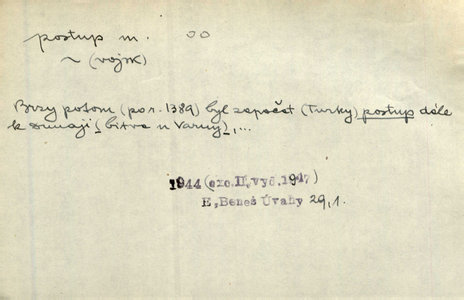 postup m. oo
~ (vojsk)
Brzy potom (po r. 1389) byl započat (Turky) postup dále
k Dunaji (bitva u Varny), ...
1944 (exc. II, vyd. 1947)
E. Beneš Úvahy 29, 1.